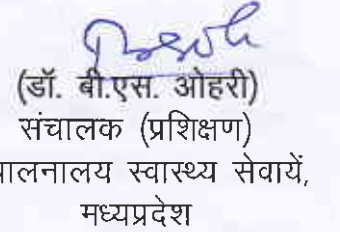 (डॉ. बी.एस. ओहरी)
संचालक (प्रशिक्षण)
स्वास्थ्य सेवायें,
मध्यप्रदेश